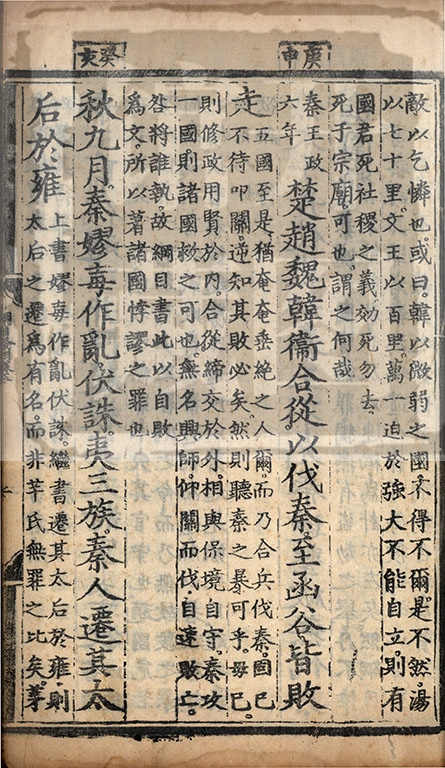 庚申
癸亥
敵以乞憐也或曰韓以微弱之國不得不爾是不然湯
以七十里文王以百里萬一迫於強大不能自立則有
國君死社稷之義效死勿去
死于宗廟可也謂之何哉
秦王政
六年
楚趙魏韓衞合從以伐秦至函谷皆敗
走
五國至是猶奄奄垂絶之人爾而乃合兵伐秦固已
不待叩關逆知其敗必矣然則聽秦之暴可乎毋已
則修政用賢於內合從締交於外相與保境自守秦攻
一國則諸國救之可也無名興師仰關而伐自速敗亡
咎將誰執故綱目書此以自敗
為文所以著諸國悖謬之罪也
秋九月秦嫪毐作亂伏誅夷三族秦人遷其太
后於雍
上書嫪毐作亂伏誅繼書遷其太后於雍則
太后之遷為有名而非芉氏無罪之比矣茅